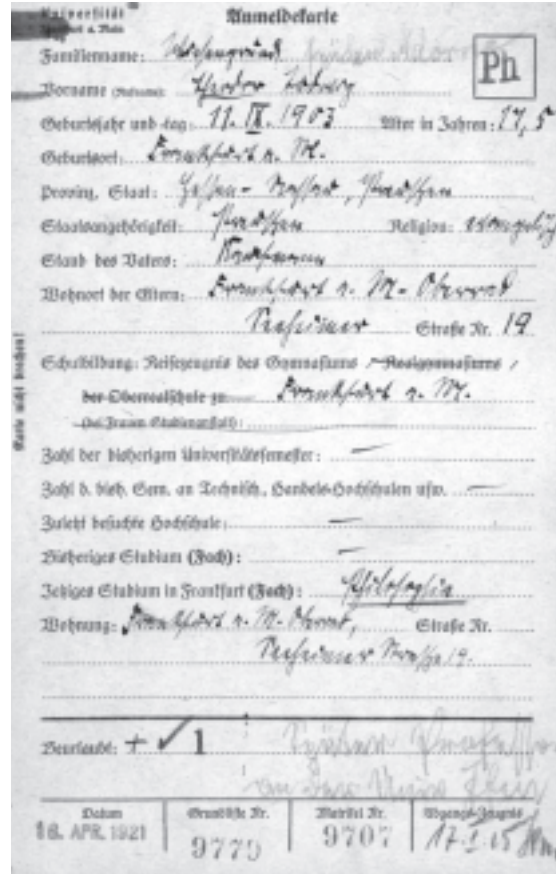 Universität Anmeldekarte
Frankfurt a. Main
Familienname: Wiesengrund später Adorno
Ph
Vorname (Rufname): Theodor Ludwig
Geburtsjahr und -tag: 11. IX. 1903 Alter in Jahren: 17,5
Geburtsort: Frankfurt a. M.
Provinz, Staat: Hessen-Nassau, Preußen
Staatsangehörigkeit: Preußen Religion: evangelisch
Stand des Vaters: Kaufmann
Wohnort der Eltern: Frankfurt a. M.-Oberrad
Seeheimer Straße Nr. 19
Schulbildung: Reifezeugnis des Gymnasiums, Realgymnasiums,
der Oberrealschule zu Frankfurt a. M.
(bei Frauen Studienanstalt):
Zahl der bisherigen Universitätssemester: —
Zahl d. bish. Sem. an Technisch., Handels-Hochschulen usw. —
Zuletzt besuchte Hochschule: —
Bisheriges Studium (Fach): —
Jetziges Studium in Frankfurt (Fach): Philosophie
Wohnung: Frankfurt a. M. Oberrad, Straße Nr.
Seeheimer Straße 19.
Beurlaubt: + ✓ 1 später Professor
an der Univ.
Datum Grundliste Nr. Matrikel Nr. Abgangs-Zeugnis
16. APR. 1921 9779 9707
Karte nicht brechen!